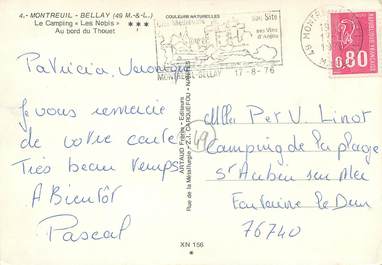 4.- MONTREUIL - BELLAY (49 M.-&-L.)
Le Camping « Les Nobis » ★★★
Au bord du Thouet
COULEURS NATURELLES
son Site
ses Vins
d'Anjou
MONTREUIL-BELLAY 17-8-76
0,80
Patricia, Veronique
Je vous remercie
de votre carte
Très beau temps
A Bientôt
Pascal
ARTAUD Frères - Editeurs
Rue de la Métallurgie - Z.I. CARQUEFOU - NANTES
49
Mlles P et V. Linot
Camping de la plage
St Auben sur Mer
Fontaine le Dun
76740
XN 156